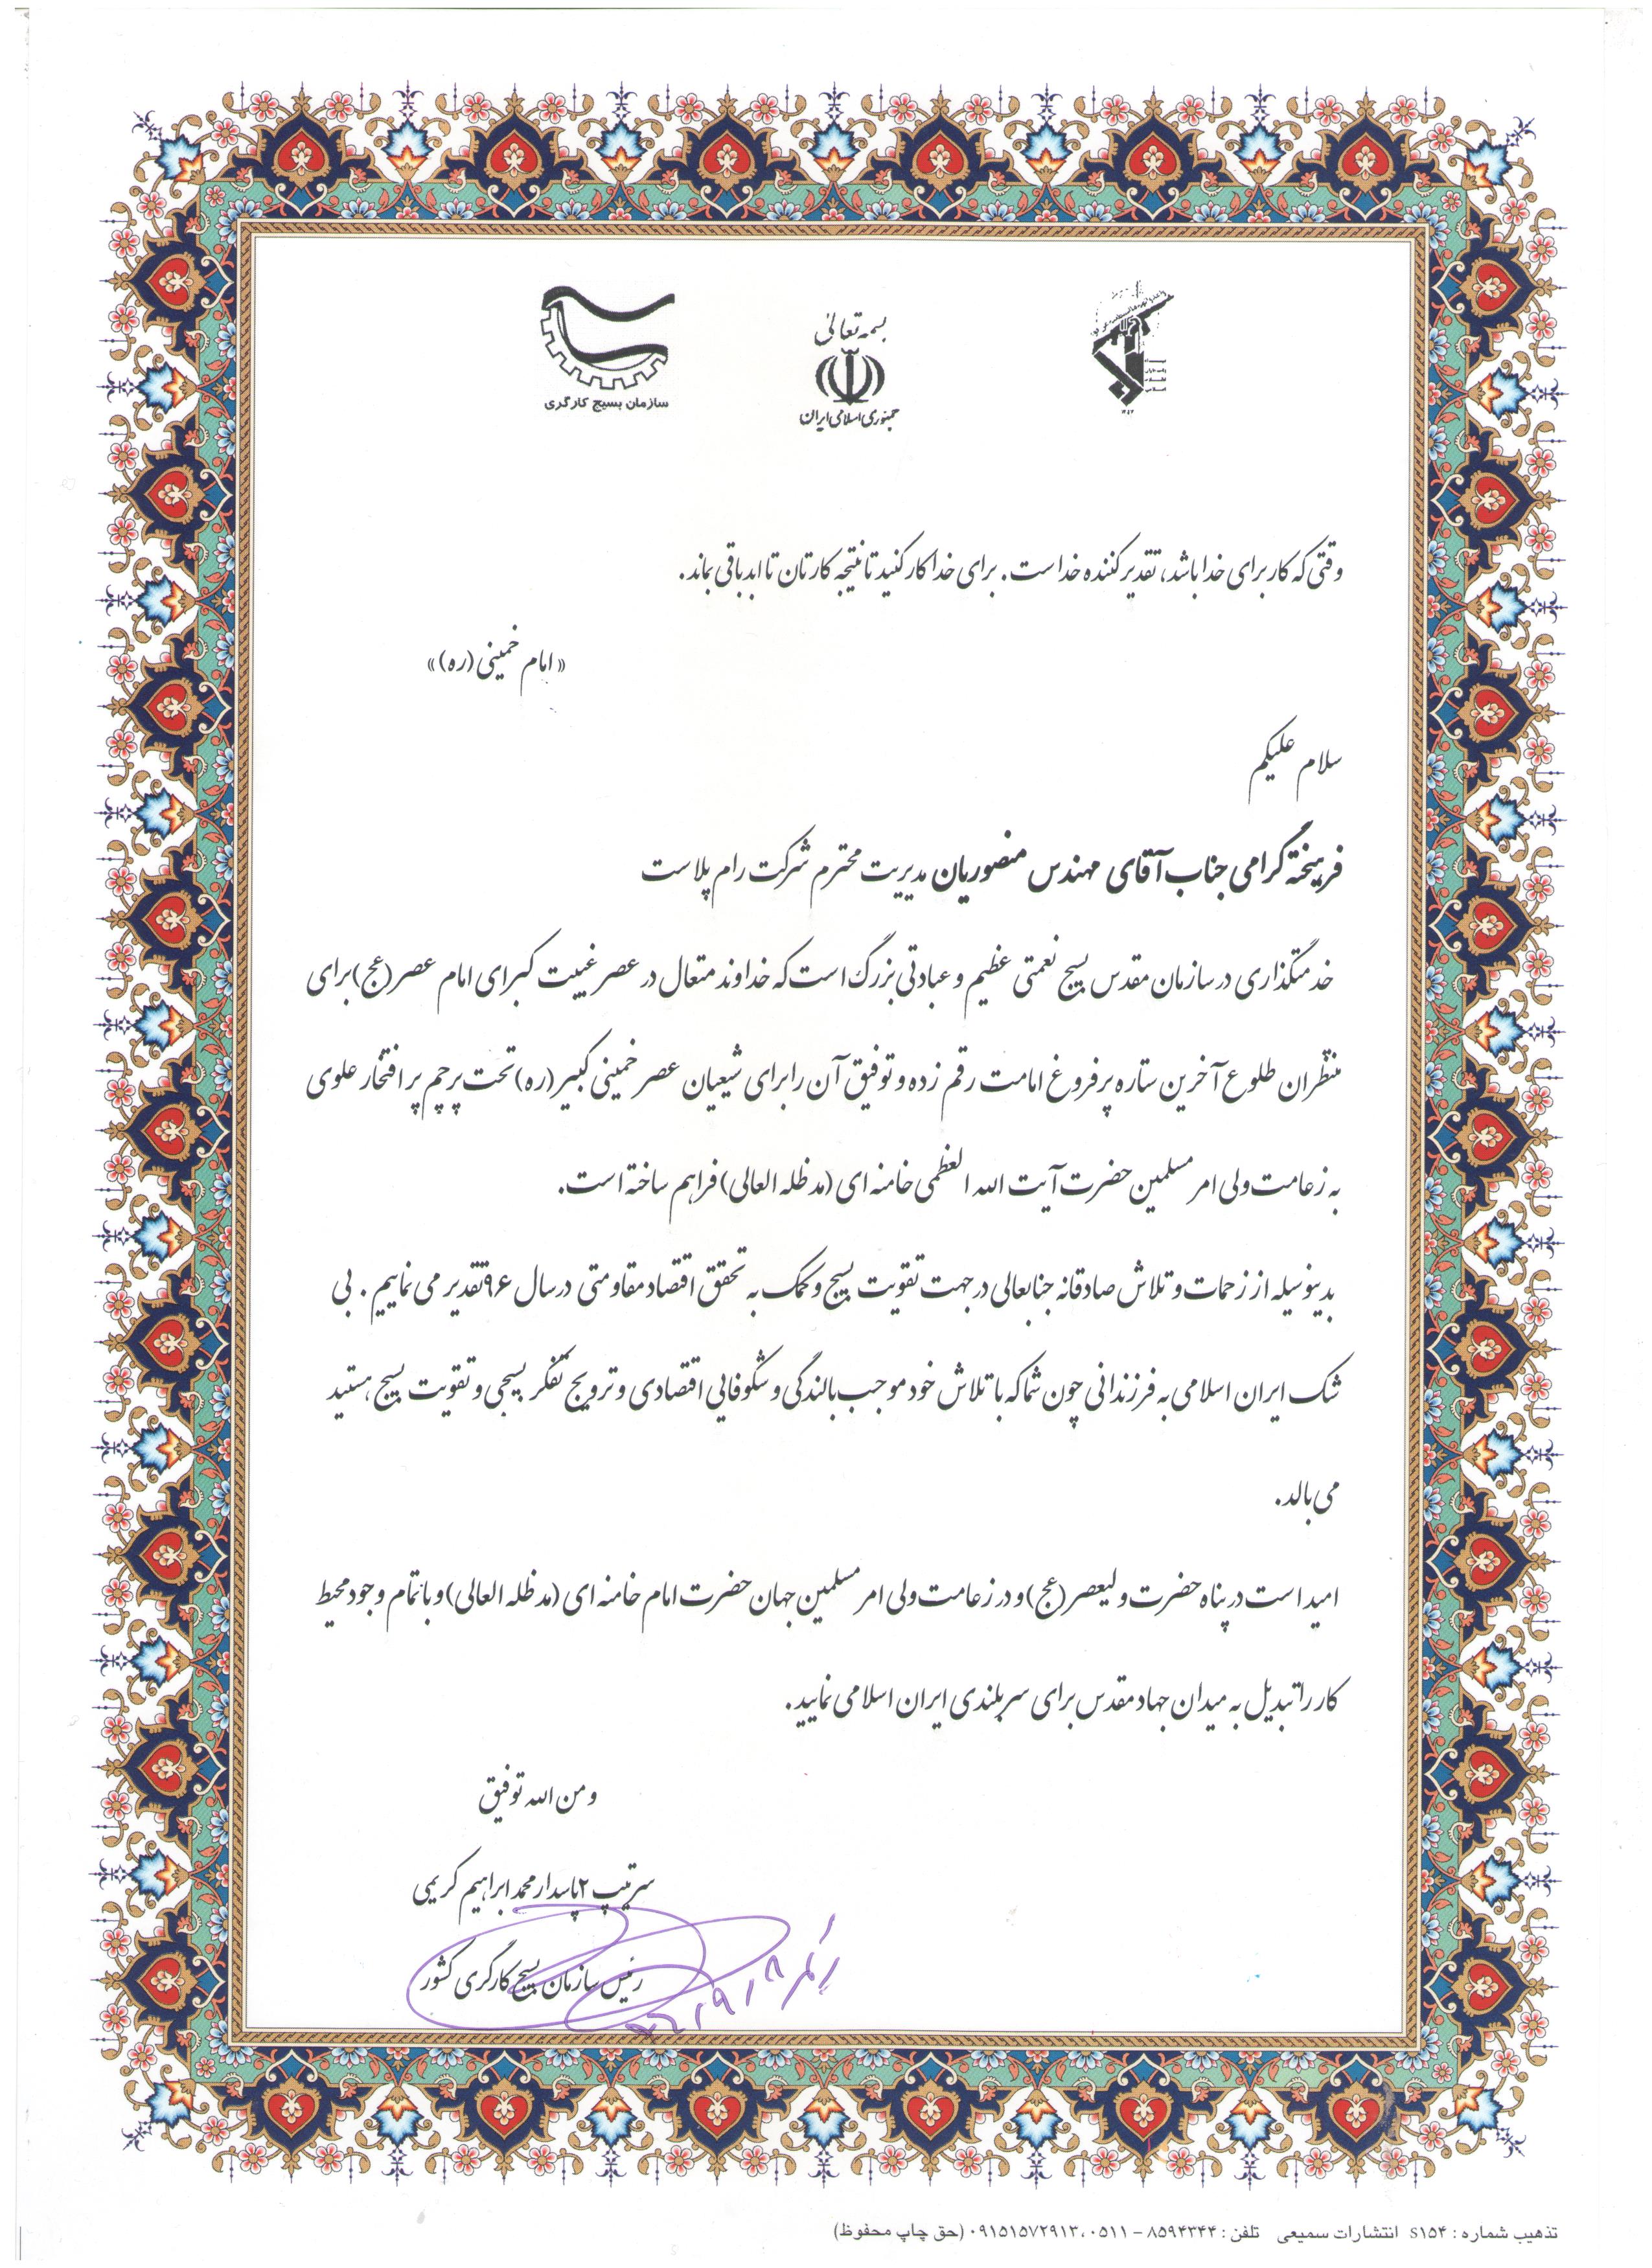 بسمه تعالی
جمهوری اسلامی ایران
سازمان بسیج کارگری
وقتی که کار برای خدا باشد، تقدیر کننده خداست. برای خدا کار کنید تا نتیجه کارتان تا ابد باقی بماند.
«امام خمینی (ره)»
سلام علیکم
فرهیخته گرامی جناب آقای مهندس منصوریان مدیریت محترم شرکت رام پلاست
خدمتگذاری در سازمان مقدس بسیج نعمتی عظیم و عبادتی بزرگ است که خداوند متعال در عصر غیبت کبرای امام عصر (عج) برای
منتظران طلوع آخرین ستاره پر فروغ امامت رقم زده و توفیق آن را برای شیعیان عصر خمینی کبیر (ره) تحت پرچم پر افتخار علوی
به زعامت ولی امر مسلمین حضرت آیت الله العظمی خامنه ای (مد ظله العالی) فراهم ساخته است.
بدینوسیله از زحمات و تلاش صادقانه جنابعالی در جهت تقویت بسیج و کمک به تحقق اقتصاد مقاومتی در سال ۹۶ تقدیر می نماییم. بی
شک ایران اسلامی به فرزندانی چون شما که با تلاش خود موجب بالندگی و شکوفایی اقتصادی و ترویج تفکر بسیجی و تقویت بسیج هستید
می بالد.
امید است در پناه حضرت ولیعصر (عج) و در زعامت ولی امر مسلمین جهان حضرت امام خامنه ای (مد ظله العالی) و با تمام وجود محیط
کار را تبدیل به میدان جهاد مقدس برای سربلندی ایران اسلامی نمایید.
و من الله توفیق
سرتیپ ۲ پاسدار محمد ابراهیم کریمی
رئیس سازمان بسیج کارگری کشور
تذهیب شماره : S۱۵۴ انتشارات سمیعی تلفن : ۸۵۹۴۳۴۴ – ۰۵۱۱ ، ۰۹۱۵۱۵۷۲۹۱۳ (حق چاپ محفوظ)